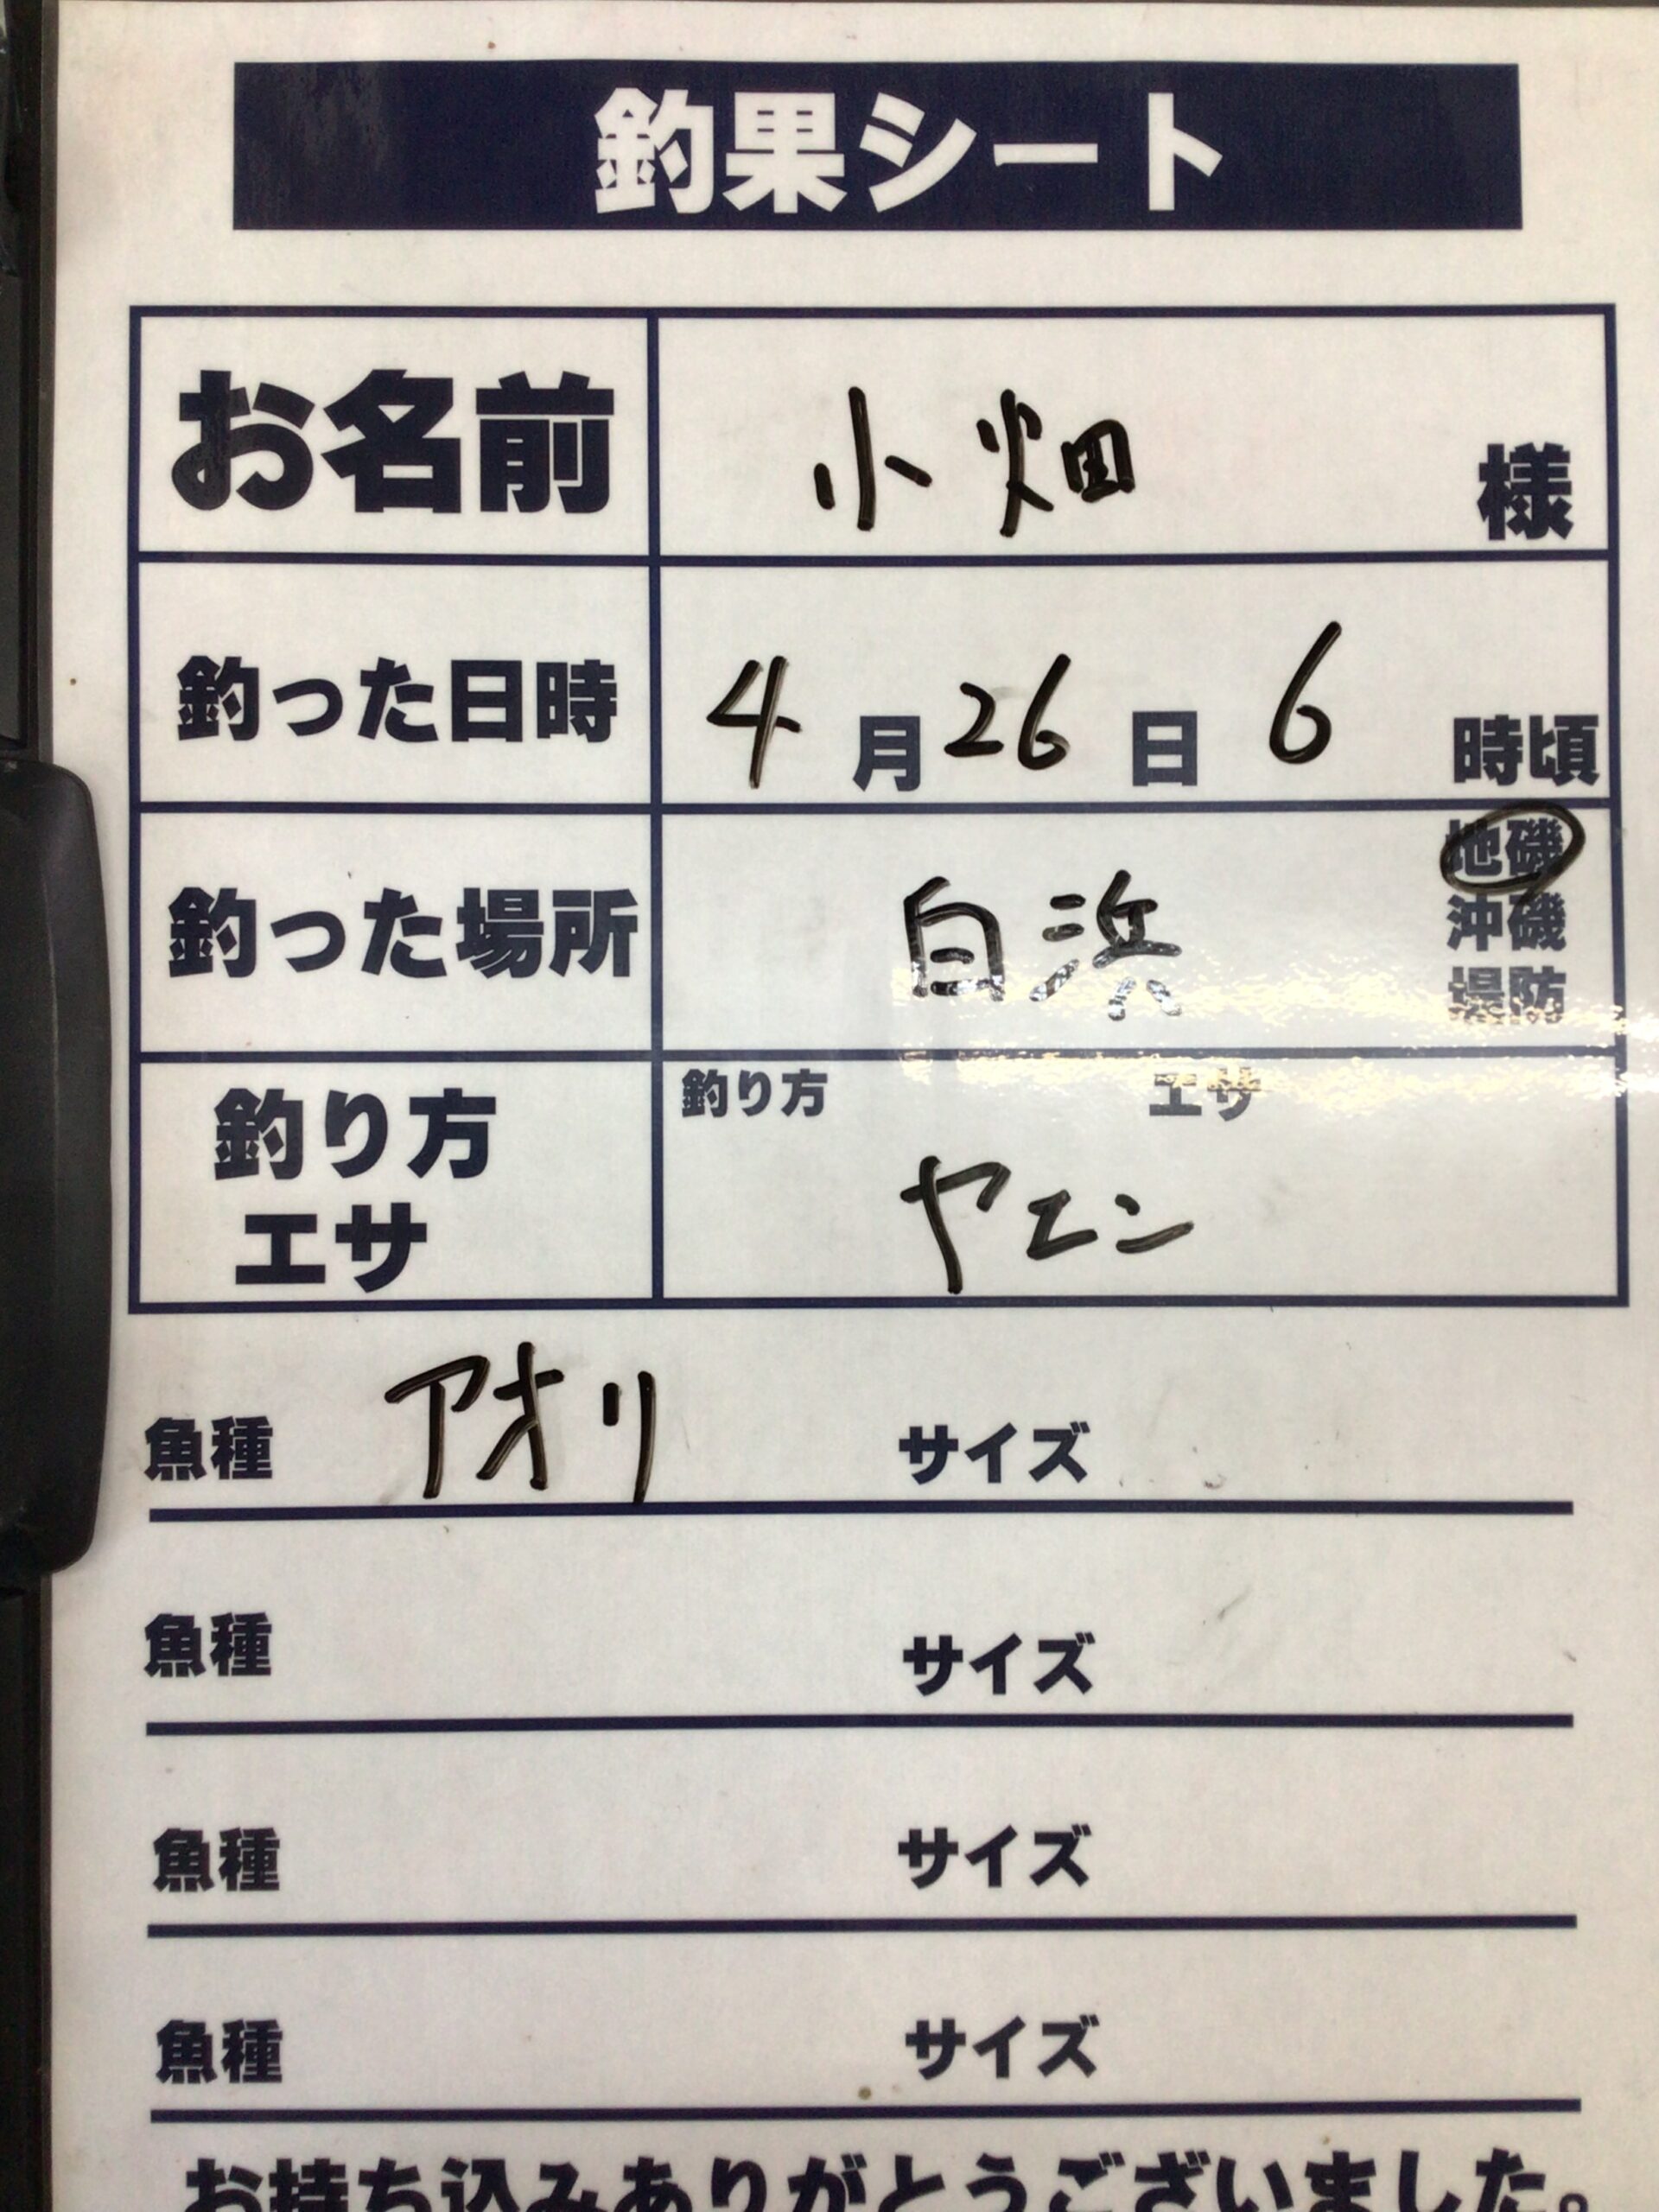 釣果シート
お名前 小畑 様
釣った日時 4月26日 6時頃
地磯
釣った場所 白浜 沖磯
堤防
釣り方 エサ
釣り方
ヤエン
エサ
魚種 アオリ サイズ
魚種 サイズ
魚種 サイズ
魚種 サイズ
お持ち込みありがとうございました。